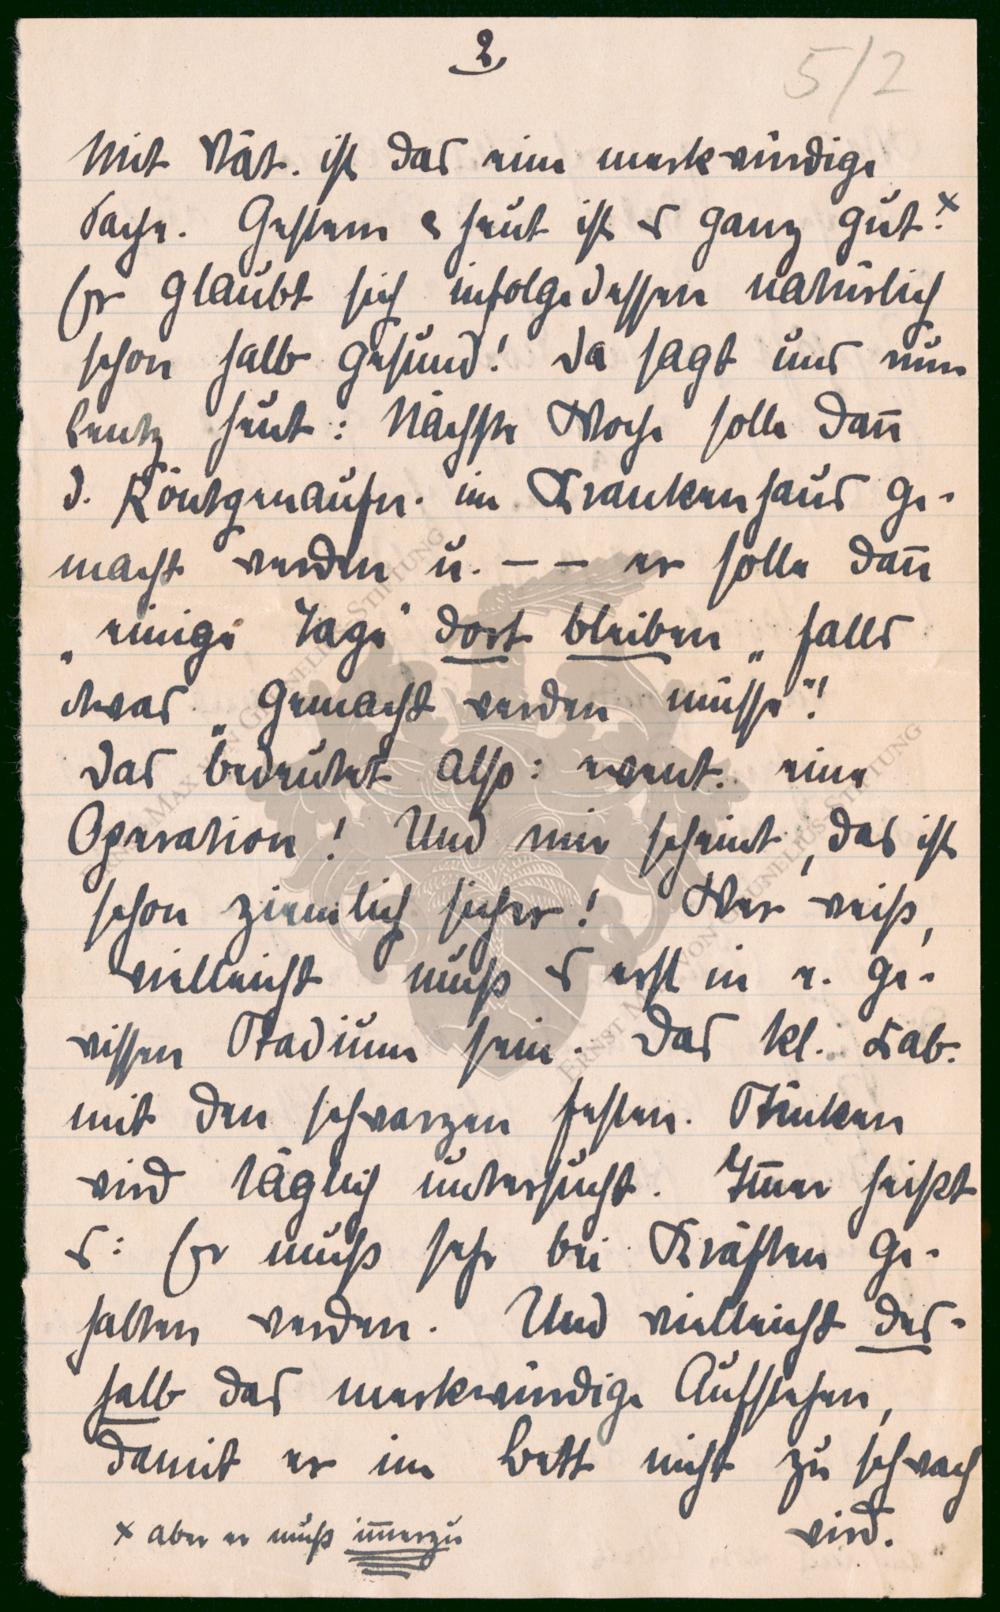 2
5/2
Mit Vät. ist das eine merkwürdige
Sache. Gestern & heut ist es ganz gut!ˣ
Er glaubt sich infolgedessen natürlich
schon halb gesund! Da sagt uns nun
Lentz heut: Nächste Woche solle dan̄
d. Röntgenaufn. im Krankenhaus ge-
macht werden u. – – er solle dan̄
„einige Tage" dort bleiben „falls
etwas „gemacht werden müsse"!
Das bedeutet also: event. eine
Operation! Und mir scheint, das ist
schon ziemlich sicher! Wer weiß,
vielleicht muß es erst in e. ge-
wissen Stadium sein. Das kl. Lab.
mit den schwarzen festen.
wird täglich untersucht. Im̄er heißt
es: Er muß sehr bei Kräften ge-
halten werden. Und vielleicht des-
halb das merkwürdige Aufstehen,
damit er im Bett nicht zu schwach
wird.
x aber er muß im̄erzu
ERNST MAX VON GRUNELIUS STIFTUNG
ERNST MAX VON GRUNELIUS STIFTUNG